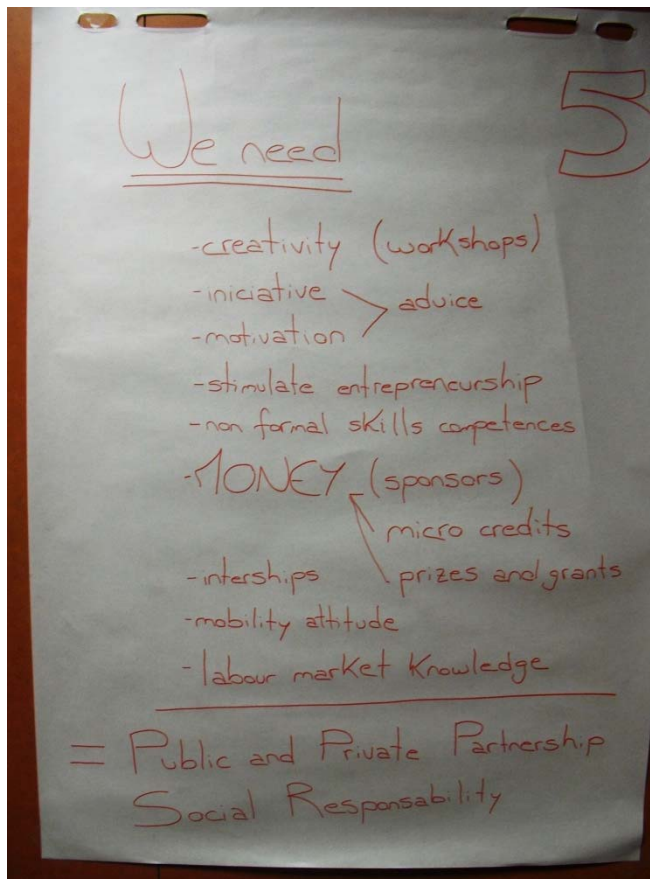 5
We need
-creativity (workshops)
-iniciative
advice
-motivation
-stimulate entrepreneurship
-non formal skills competences
-MONEY (sponsors)
micro credits
-interships
prizes and grants
-mobility attitude
-labour market knowledge
= Public and Private Partnership
Social Responsability